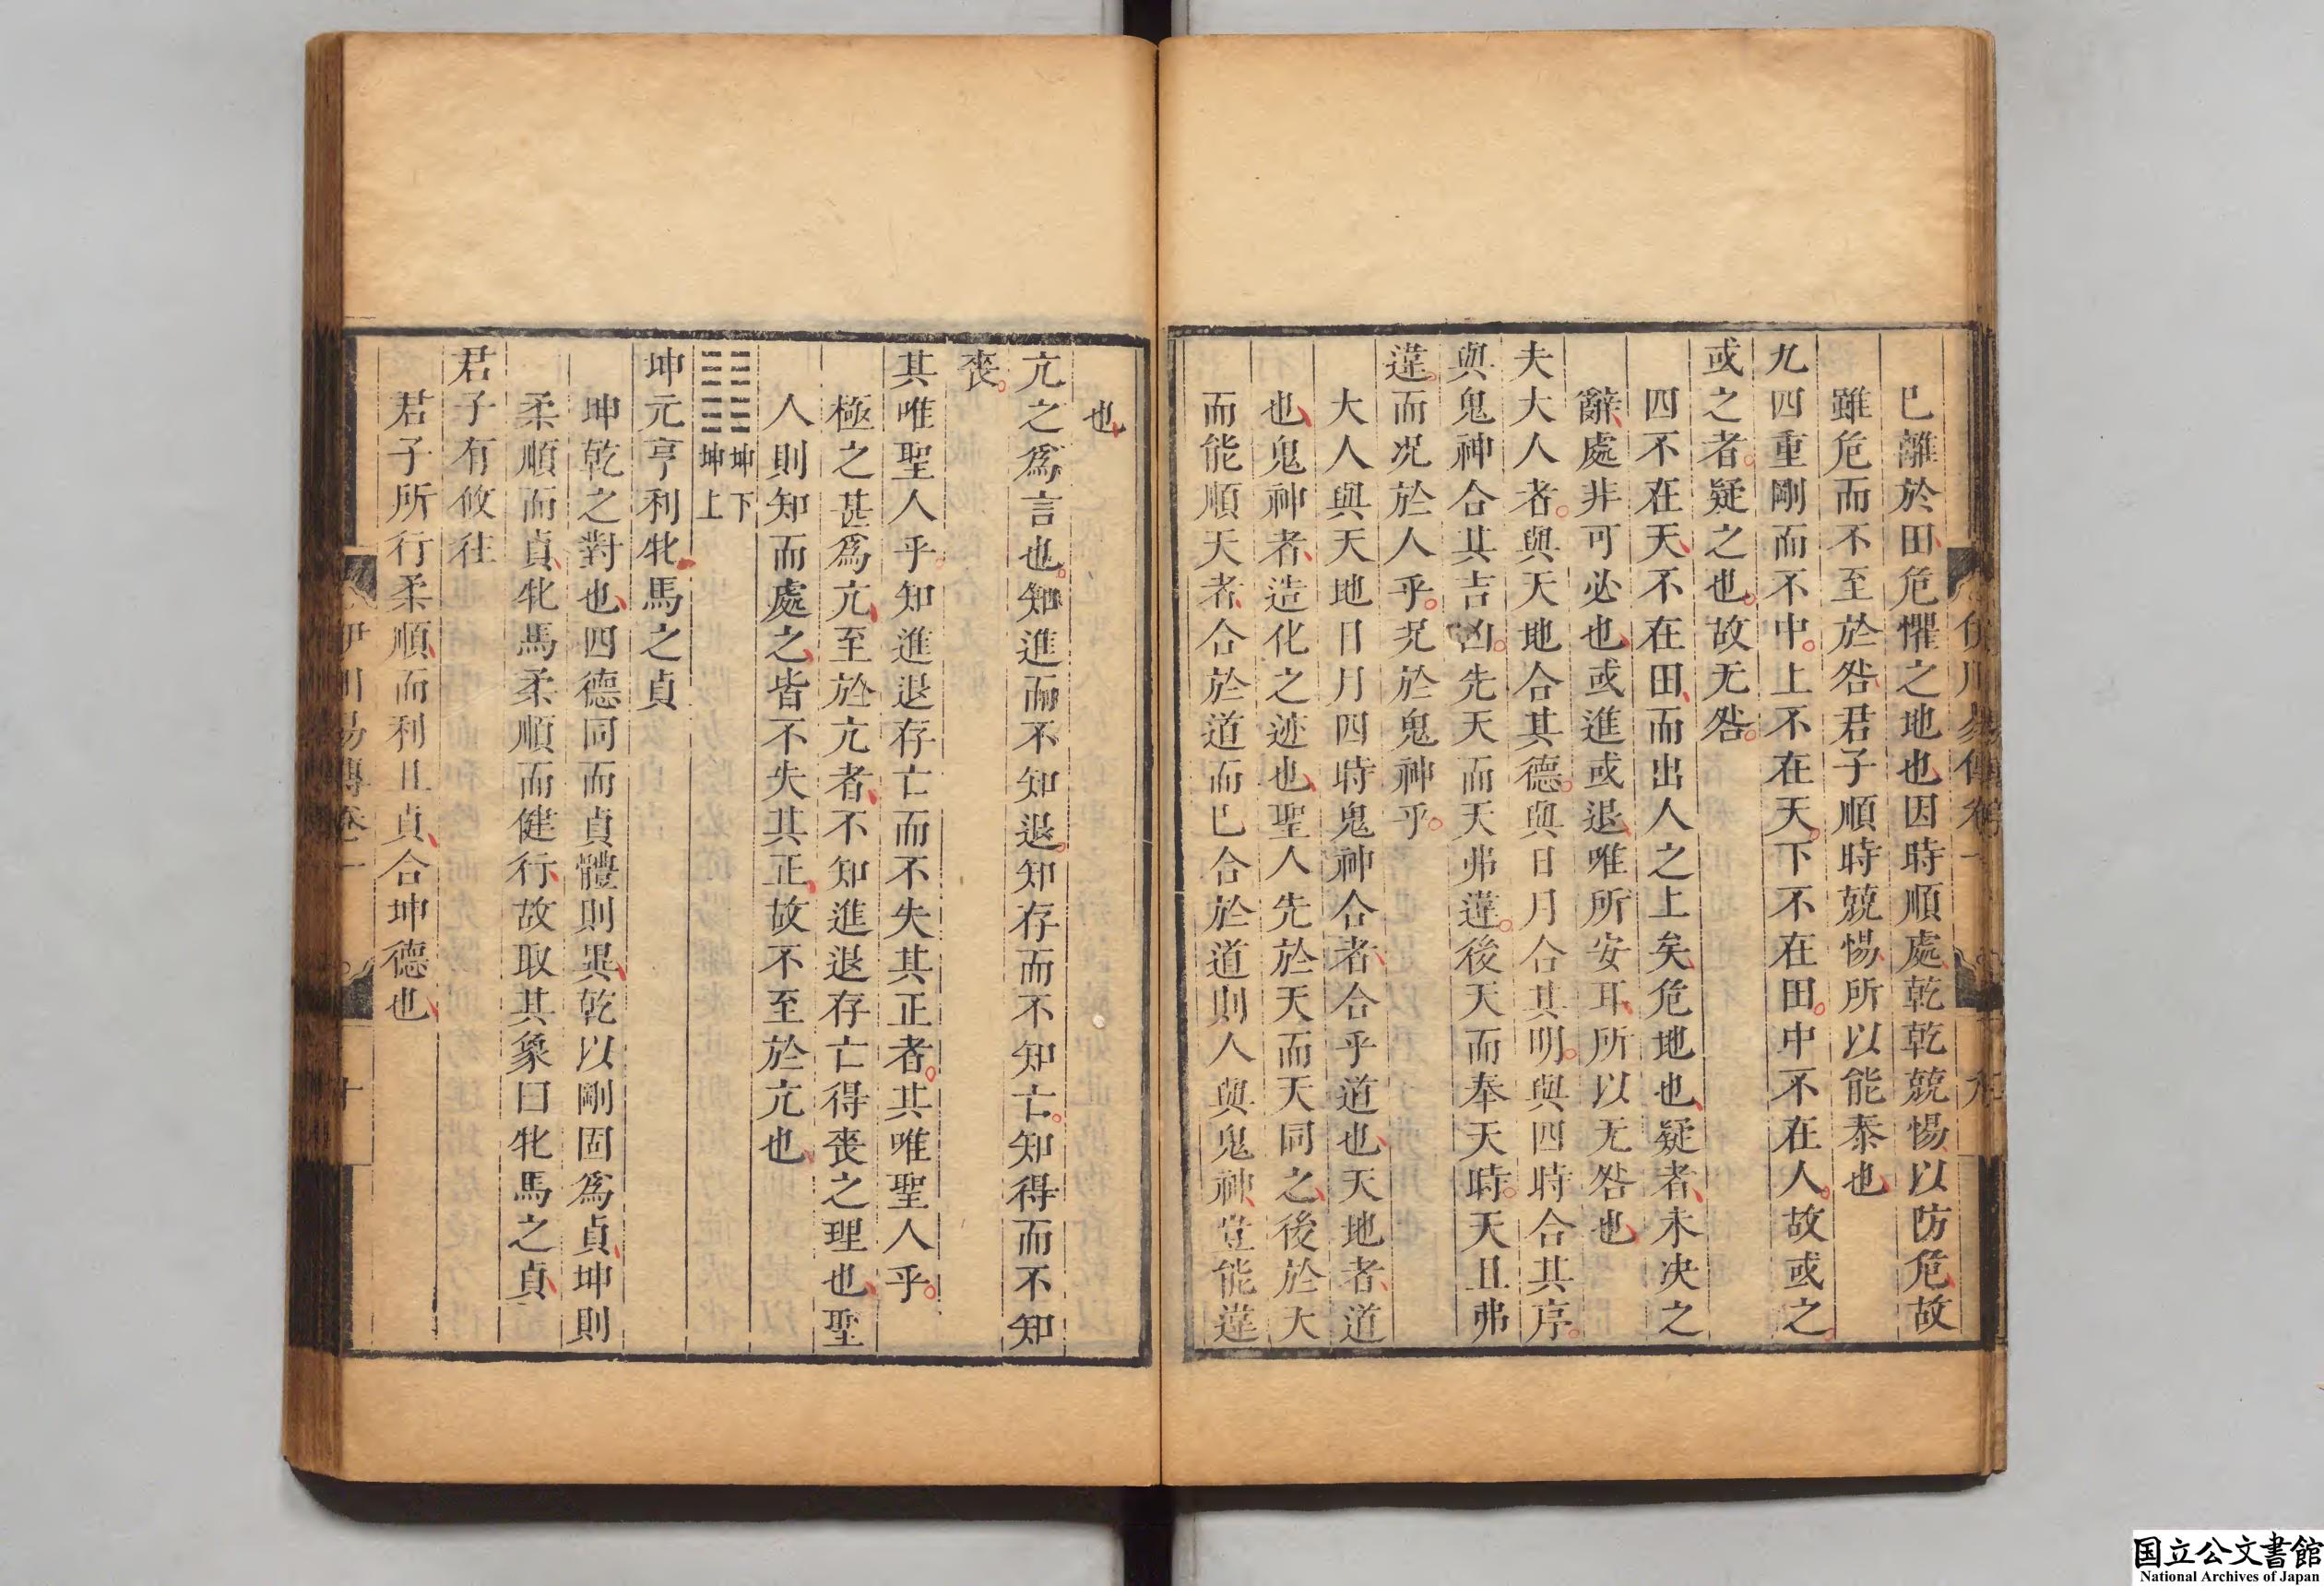 伊川易傳卷一
九
已離於田危懼之地也因時順處乾乾兢惕以防危故
雖危而不至於咎君子順時兢惕所以能泰也
九四重剛而不中上不在天下不在田中不在人故或之
或之者疑之也故无咎
四不在天不在田而出人之上矣危地也疑者未決之
辭處非可必也或進或退唯所安耳所以无咎也
夫大人者與天地合其德與日月合其明與四時合其序
與鬼神合其吉凶先天而天弗違後天而奉天時天且弗
違而况於人乎况於鬼神乎
大人與天地日月四時鬼神合者合乎道也天地者道
也鬼神者造化之迹也聖人先於天而天同之後於天
而能順天者合於道而已合於道則人與鬼神豈能違
也
亢之爲言也知進而不知退知存而不知亡知得而不知
喪
其唯聖人乎知進退存亡而不失其正者其唯聖人乎
極之甚爲亢至於亢者不知進退存亡得喪之理也聖
人則知而處之皆不失其正故不至於亢也
䷁坤下
坤上
坤元亨利牝馬之貞
坤乾之對也四德同而貞體則異乾以剛固爲貞坤則
柔順而貞牝馬柔順而健行故取其象曰牝馬之貞
君子有攸往
君子所行柔順而利且貞合坤德也
伊川易傳卷一
十
国立公文書館
National Archives of Japan